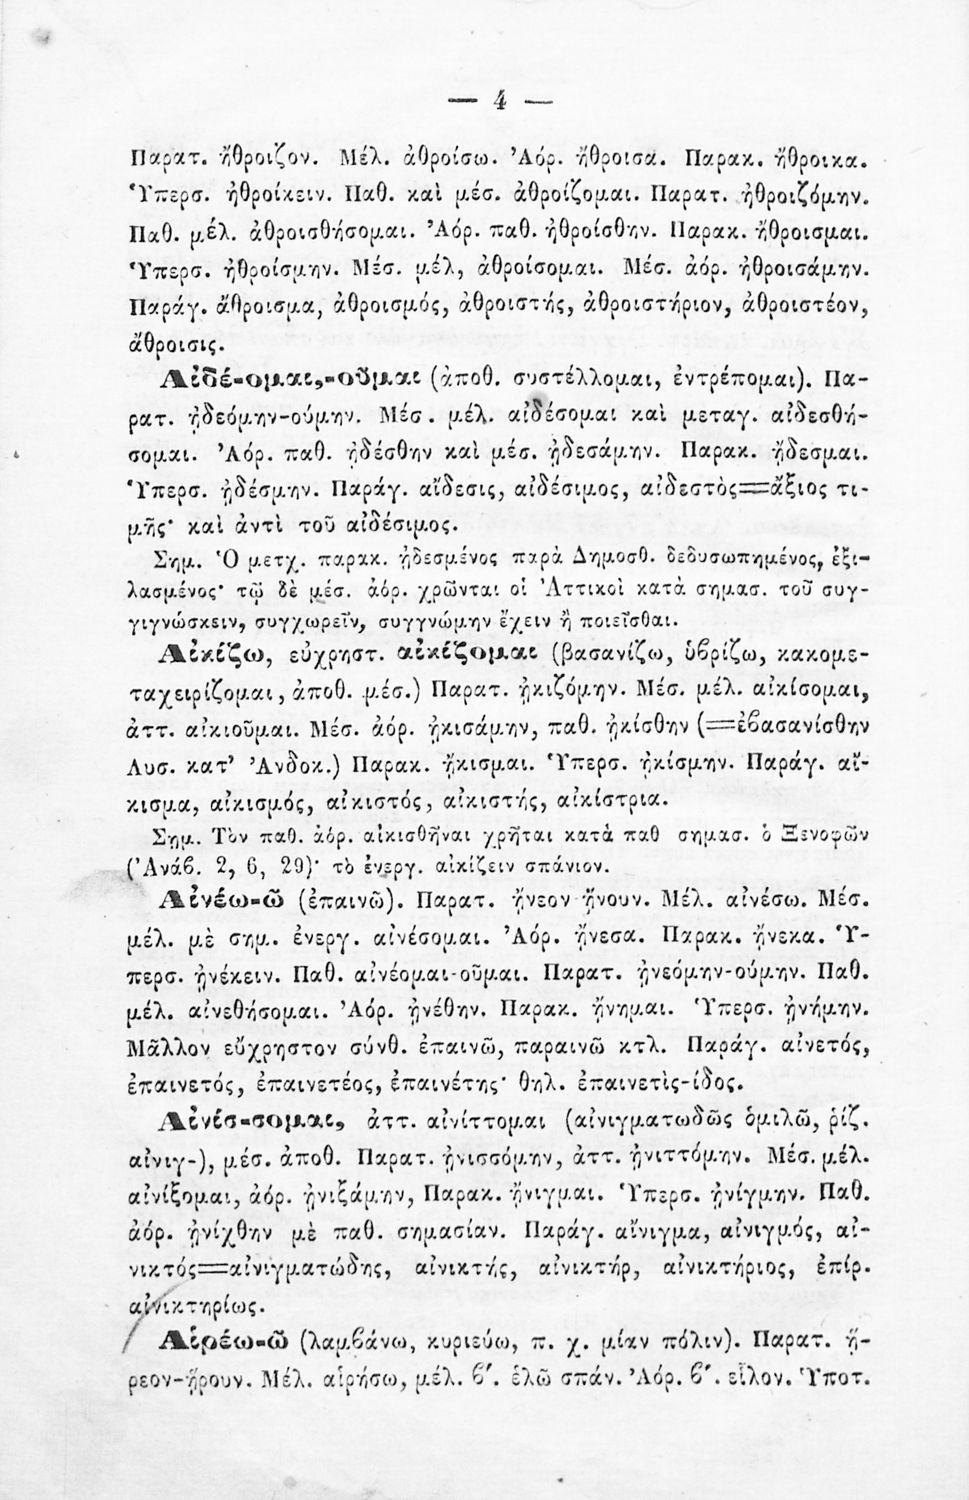 — 4 —
Παρατ. ἤθροιζον. Μέλ. ἀθροίσω. Ἀόρ. ἤθροισα. Παρακ. ἤθροικα.
Ὑπερσ. ἠθροίκειν. Παθ. καὶ μέσ. ἀθροίζομαι. Παρατ. ἠθροιζόμην.
Παθ. μέλ. ἀθροισθήσομαι. Ἀόρ. παθ. ἠθροίσθην. Παρακ. ἤθροισμαι.
Ὑπερσ. ἠθροίσμην. Μέσ. μέλ, ἀθροίσομαι. Μέσ. ἀόρ. ἠθροισάμην.
Παράγ. ἄθροισμα, ἀθροισμός, ἀθροιστής, ἀθροιστήριον, ἀθροιστέον,
ἄθροισις.
Αἰδέ-ομαι,-οῦμαι (ἀποθ. συστέλλομαι, ἐντρέπομαι). Πα-
ρατ. ᾐδεόμην-ούμην. Μέσ. μέλ. αἰδέσομαι καὶ μεταγ. αἰδεσθή-
σομαι. Ἀόρ. παθ. ᾐδέσθην καὶ μέσ. ᾐδεσάμην. Παρακ. ᾔδεσμαι.
Ὑπερσ. ᾐδέσμην. Παράγ. αἴδεσις, αἰδέσιμος, αἰδεστὸς=ἄξιος τι-
μῆς· καὶ ἀντὶ τοῦ αἰδέσιμος.
Σημ. Ὁ μετχ. παρακ. ᾐδεσμένος παρὰ Δημοσθ. δεδυσωπημένος, ἐξι-
λασμένος· τῷ δὲ μέσ. ἀόρ. χρῶνται οἱ Ἀττικοὶ κατὰ σημασ. τοῦ συγ-
γιγνώσκειν, συγχωρεῖν, συγγνώμην ἔχειν ἢ ποιεῖσθαι.
Αἰκίζω, εὔχρηστ. αἰκίζομαι (βασανίζω, ὑβρίζω, κακομε-
ταχειρίζομαι, ἀποθ. μέσ.) Παρατ. ᾐκιζόμην. Μέσ. μέλ. αἰκίσομαι,
ἀττ. αἰκιοῦμαι. Μέσ. ἀόρ. ᾐκισάμην, παθ. ᾐκίσθην (=ἐβασανίσθην
Λυσ. κατ’ Ἀνδοκ.) Παρακ. ᾔκισμαι. Ὑπερσ. ᾐκίσμην. Παράγ. αἴ-
κισμα, αἰκισμός, αἰκιστός, αἰκιστής, αἰκίστρια.
Σημ. Τὸν παθ. ἀόρ. αἰκισθῆναι χρῆται κατὰ παθ σημασ. ὁ Ξενοφῶν
(Ἀνάβ. 2, 6, 29)· τὸ ἐνεργ. αἰκίζειν σπάνιον.
Αἰνέω-ῶ (ἐπαινῶ). Παρατ. ᾔνεον-ᾔνουν. Μέλ. αἰνέσω. Μέσ.
μέλ. μὲ σημ. ἐνεργ. αἰνέσομαι. Ἀόρ. ᾔνεσα. Παρακ. ᾔνεκα. Ὑ-
περσ. ᾐνέκειν. Παθ. αἰνέομαι-οῦμαι. Παρατ. ᾐνεόμην-ούμην. Παθ.
μέλ. αἰνεθήσομαι. Ἀόρ. ᾐνέθην. Παρακ. ᾔνημαι. Ὑπερσ. ᾐνήμην.
Μᾶλλον εὔχρηστον σύνθ. ἐπαινῶ, παραινῶ κτλ. Παράγ. αἰνετός,
ἐπαινετός, ἐπαινετέος, ἐπαινέτης· θηλ. ἐπαινετὶς-ίδος.
Αἰνίσ-σομαι, ἀττ. αἰνίττομαι (αἰνιγματωδῶς ὁμιλῶ, ῥίζ.
αἰνιγ-), μέσ. ἀποθ. Παρατ. ᾐνισσόμην, ἀττ. ᾐνιττόμην. Μέσ. μέλ.
αἰνίξομαι, ἀόρ. ᾐνιξάμην, Παρακ. ᾔνιγμαι. Ὑπερσ. ᾐνίγμην. Παθ.
ἀόρ. ᾐνίχθην μὲ παθ. σημασίαν. Παράγ. αἴνιγμα, αἰνιγμός, αἰ-
νικτός=αἰνιγματώδης, αἰνικτής, αἰνικτήρ, αἰνικτήριος, ἐπίρ.
αἰνικτηρίως.
Αἱρέω-ῶ (λαμβάνω, κυριεύω, π. χ. μίαν πόλιν). Παρατ. ᾕ-
ρεον-ᾕρουν. Μέλ. αἱρήσω, μέλ. β΄. ἑλῶ σπάν. Ἀόρ. β΄. εἷλον. Ὑποτ.